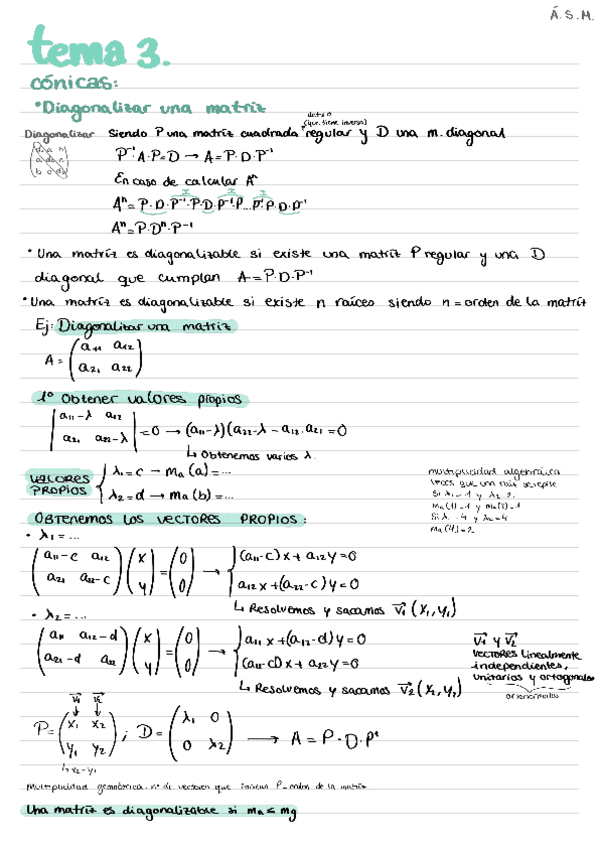 Á.S.M.
tema 3.
cónicas:
• Diagonalizar una matriz
det ≠ 0
(que tiene inversa)
Diagonalizar Siendo P una matriz cuadrada regular y D una m. diagonal
P⁻¹·A·P=D → A=P·D·P⁻¹
En caso de calcular Aⁿ
Aⁿ=P·D·P⁻¹·P·D·P⁻¹·P...P⁻¹·P·D·P⁻¹
Aⁿ=P·Dⁿ·P⁻¹
• Una matriz es diagonalizable si existe una matriz P regular y una D
diagonal que cumplan A=P·D·P⁻¹
• Una matriz es diagonalizable si existe n raíces siendo n = orden de la matriz
Ej: Diagonalizar una matriz
A = (a₁₁ a₁₂
a₂₁ a₂₂)
1º Obtener valores propios
|a₁₁-λ a₁₂
a₂₁ a₂₂-λ| =0 → (a₁₁-λ)(a₂₂-λ - a₁₂·a₂₁ =0
↳ Obtenemos varios λ.
VALORES PROPIOS
λ₁=c → ma(a)=...
λ₂=d → ma(b)=...
multiplicidad algebraica
veces que una raíz se repite
Si λ₁=1 y λ₂=2
ma(1)=1 y ma(2)=1
Si λ₁=4 y λ₂=4
ma(4)=2
OBTENEMOS LOS VECTORES PROPIOS:
• λ₁=...
(a₁₁-c a₁₂
a₂₁ a₂₂-c) (x y) = (0 0) → {(a₁₁-c)x+a₁₂y=0
a₁₂x+(a₂₂-c)y=0
↳ Resolvemos y sacamos v₁(x₁,y₁)
• λ₂=...
(a₁₁ a₁₂-d
a₂₁-d a₂₂) (x y) = (0 0) → {a₁₁x+(a₁₂-d)y=0
(a₂₁-d)x+a₂₂y=0
↳ Resolvemos y sacamos v₂(x₂,y₂)
v₁ y v₂
vectores linealmente
independientes,
unitarios y ortogonales
ortonormales
v₁ v₂
P=(x₁ x₂
y₁ y₂); D=(λ₁ 0
0 λ₂) → A=P·D·Pᵗ
Multiplicidad geométrica: nº de vectores que forman P = orden de la matriz
Una matriz es diagonalizable si ma ≤ mg